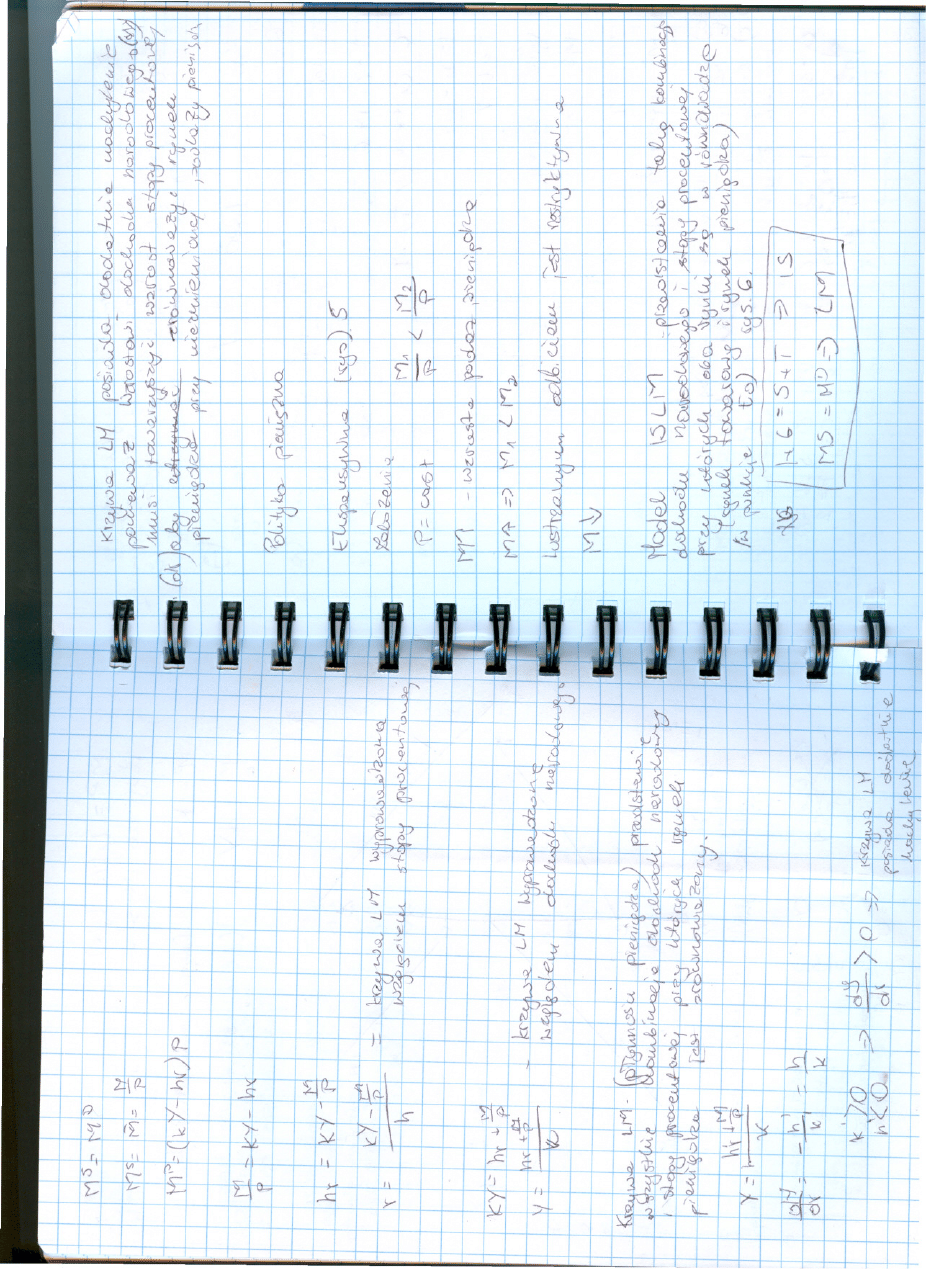 M^S = M^D
M^S = M̄ = M/P
M^D = (kY - hr)P
M/P = kY - hr
hr = kY - M/P
r = (kY - M/P)/h = krzywa LM wyprowadzona
względem stopy procentowej
kY = hr + M/P
Y = (hr + M/P)/k - krzywa LM wyprowadzona
względem dochodu narodowego
Krzywa LM - (płynności pieniądza) przedstawia
wszystkie kombinacje dochodu narodowego
i stopy procentowej przy których rynek
pieniądza jest zrównoważony.
Y = (hr + M/P)/k
dY/dr = - h'/k' = h/k
k' > 0
h' < 0 ⇒ dY/dr > 0 ⇒ krzywa LM
posiada dodatnie
nachylenie
Krzywa LM posiada dodatnie nachylenie
ponieważ wzrostowi dochodu narodowego (dy)
musi towarzyszyć wzrost stopy procentowej
(dr) aby zrównoważyć rynek
pieniądza przy niezmienionej podaży pieniądza
Polityka pieniężna
Ekspansywna (rys) 5
Założenie
P = const M₁/P < M₂/P
M↑ - wzrasta podaż pieniądza
M↑ ⇒ M₁ < M₂
Lustrzanym odbiciem jest restryktywna
M↓
Model ISLM - przedstawia taką kombinację
dochodu narodowego i stopy procentowej
przy których oba rynki są w równowadze
(rynek towarowy i rynek pieniądza)
/w punkcie E0) rys. 6.
I + G = S + T ⇒ IS
MS = MD ⇒ LM